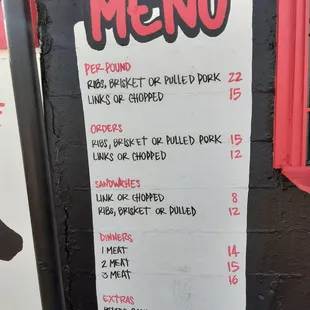 MENU
PER POUND
RIBS, BRISKET OR PULLED PORK 22
LINKS OR CHOPPED 15
ORDERS
RIBS, BRISKET OR PULLED PORK 15
LINKS OR CHOPPED 12
SANDWICHES
LINK OR CHOPPED 8
RIBS, BRISKET OR PULLED 12
DINNERS
1 MEAT 14
2 MEAT 15
3 MEAT 16
EXTRAS